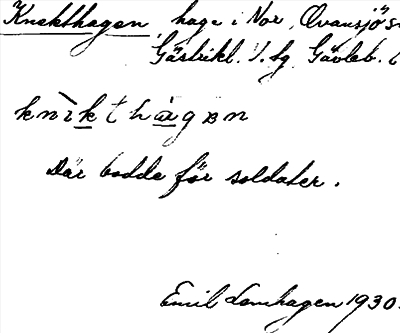 Knekthagen, hage i Nor, Ovansjö
Gästrikl. Gävleb.
knìkthàgən
Där bodde för soldater.
Emil Lomhagen 1930.